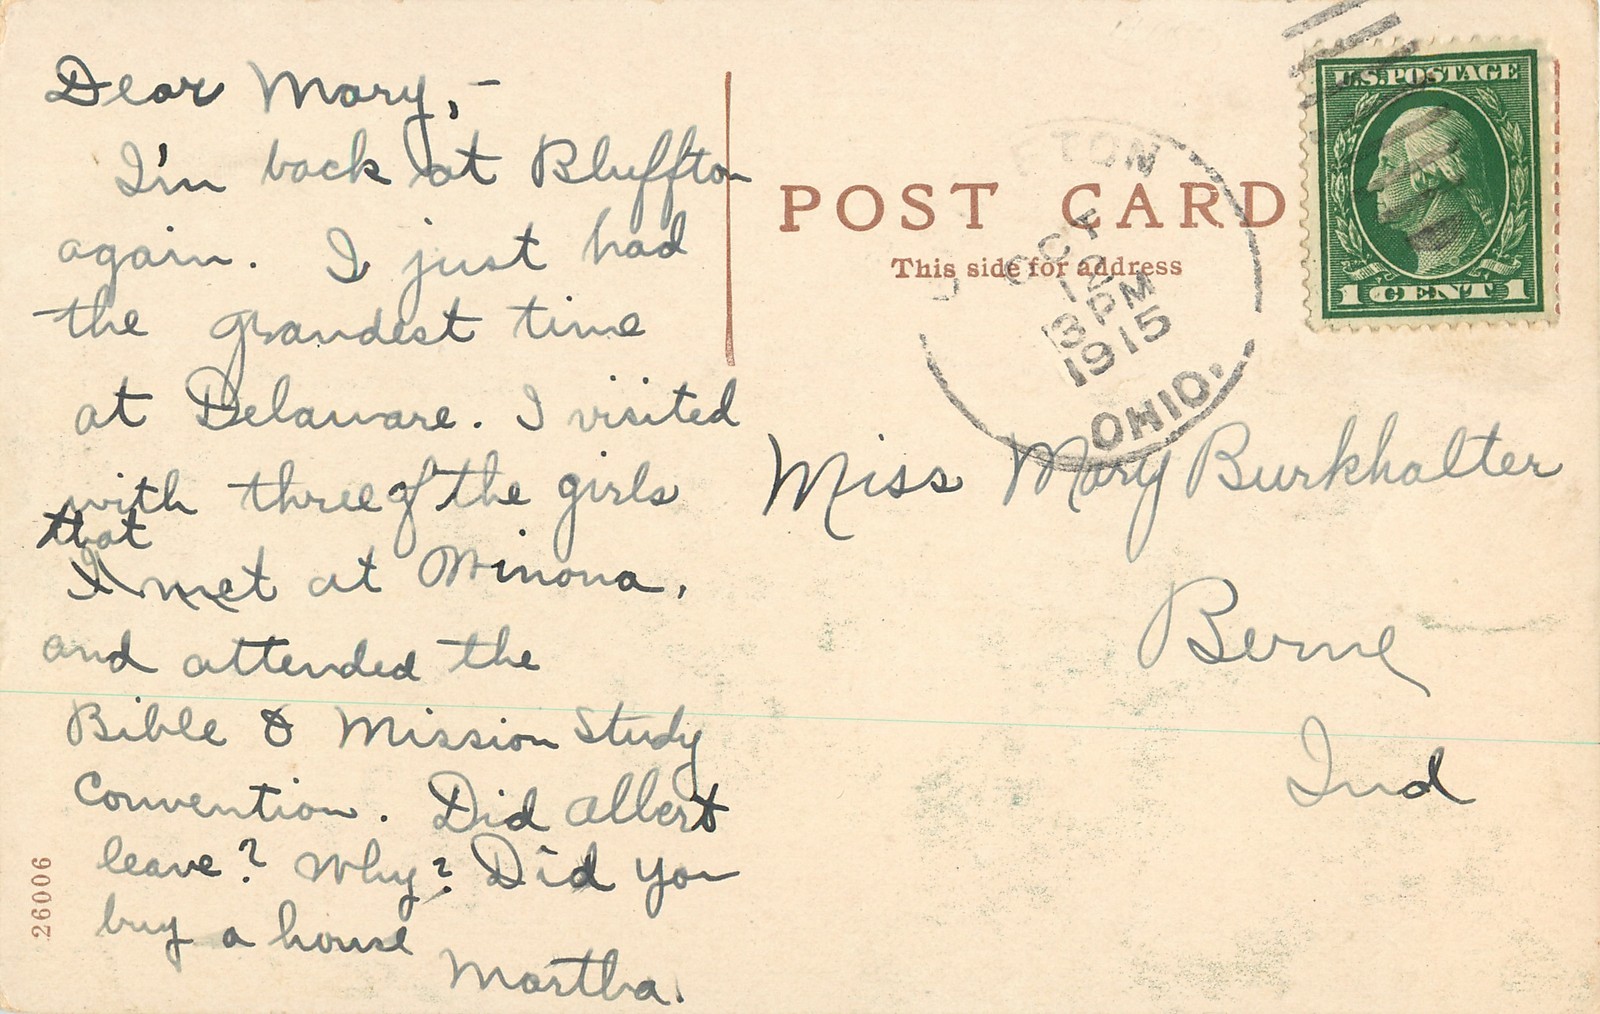 Dear Mary, –
I'm back at Bluffton
again. I just had
the grandest time
at Delaware. I visited
with three of the girls
that
I met at Winona,
and attended the
Bible & Mission Study
Convention. Did Albert
leave? Why? Did you
buy a house
Martha.
26006
POST CARD
This side for address
FTON
OCT
12
3 PM
1915
OHIO.
U.S. POSTAGE
1 CENT 1
Miss Mary Burkhalter
Berne
Ind